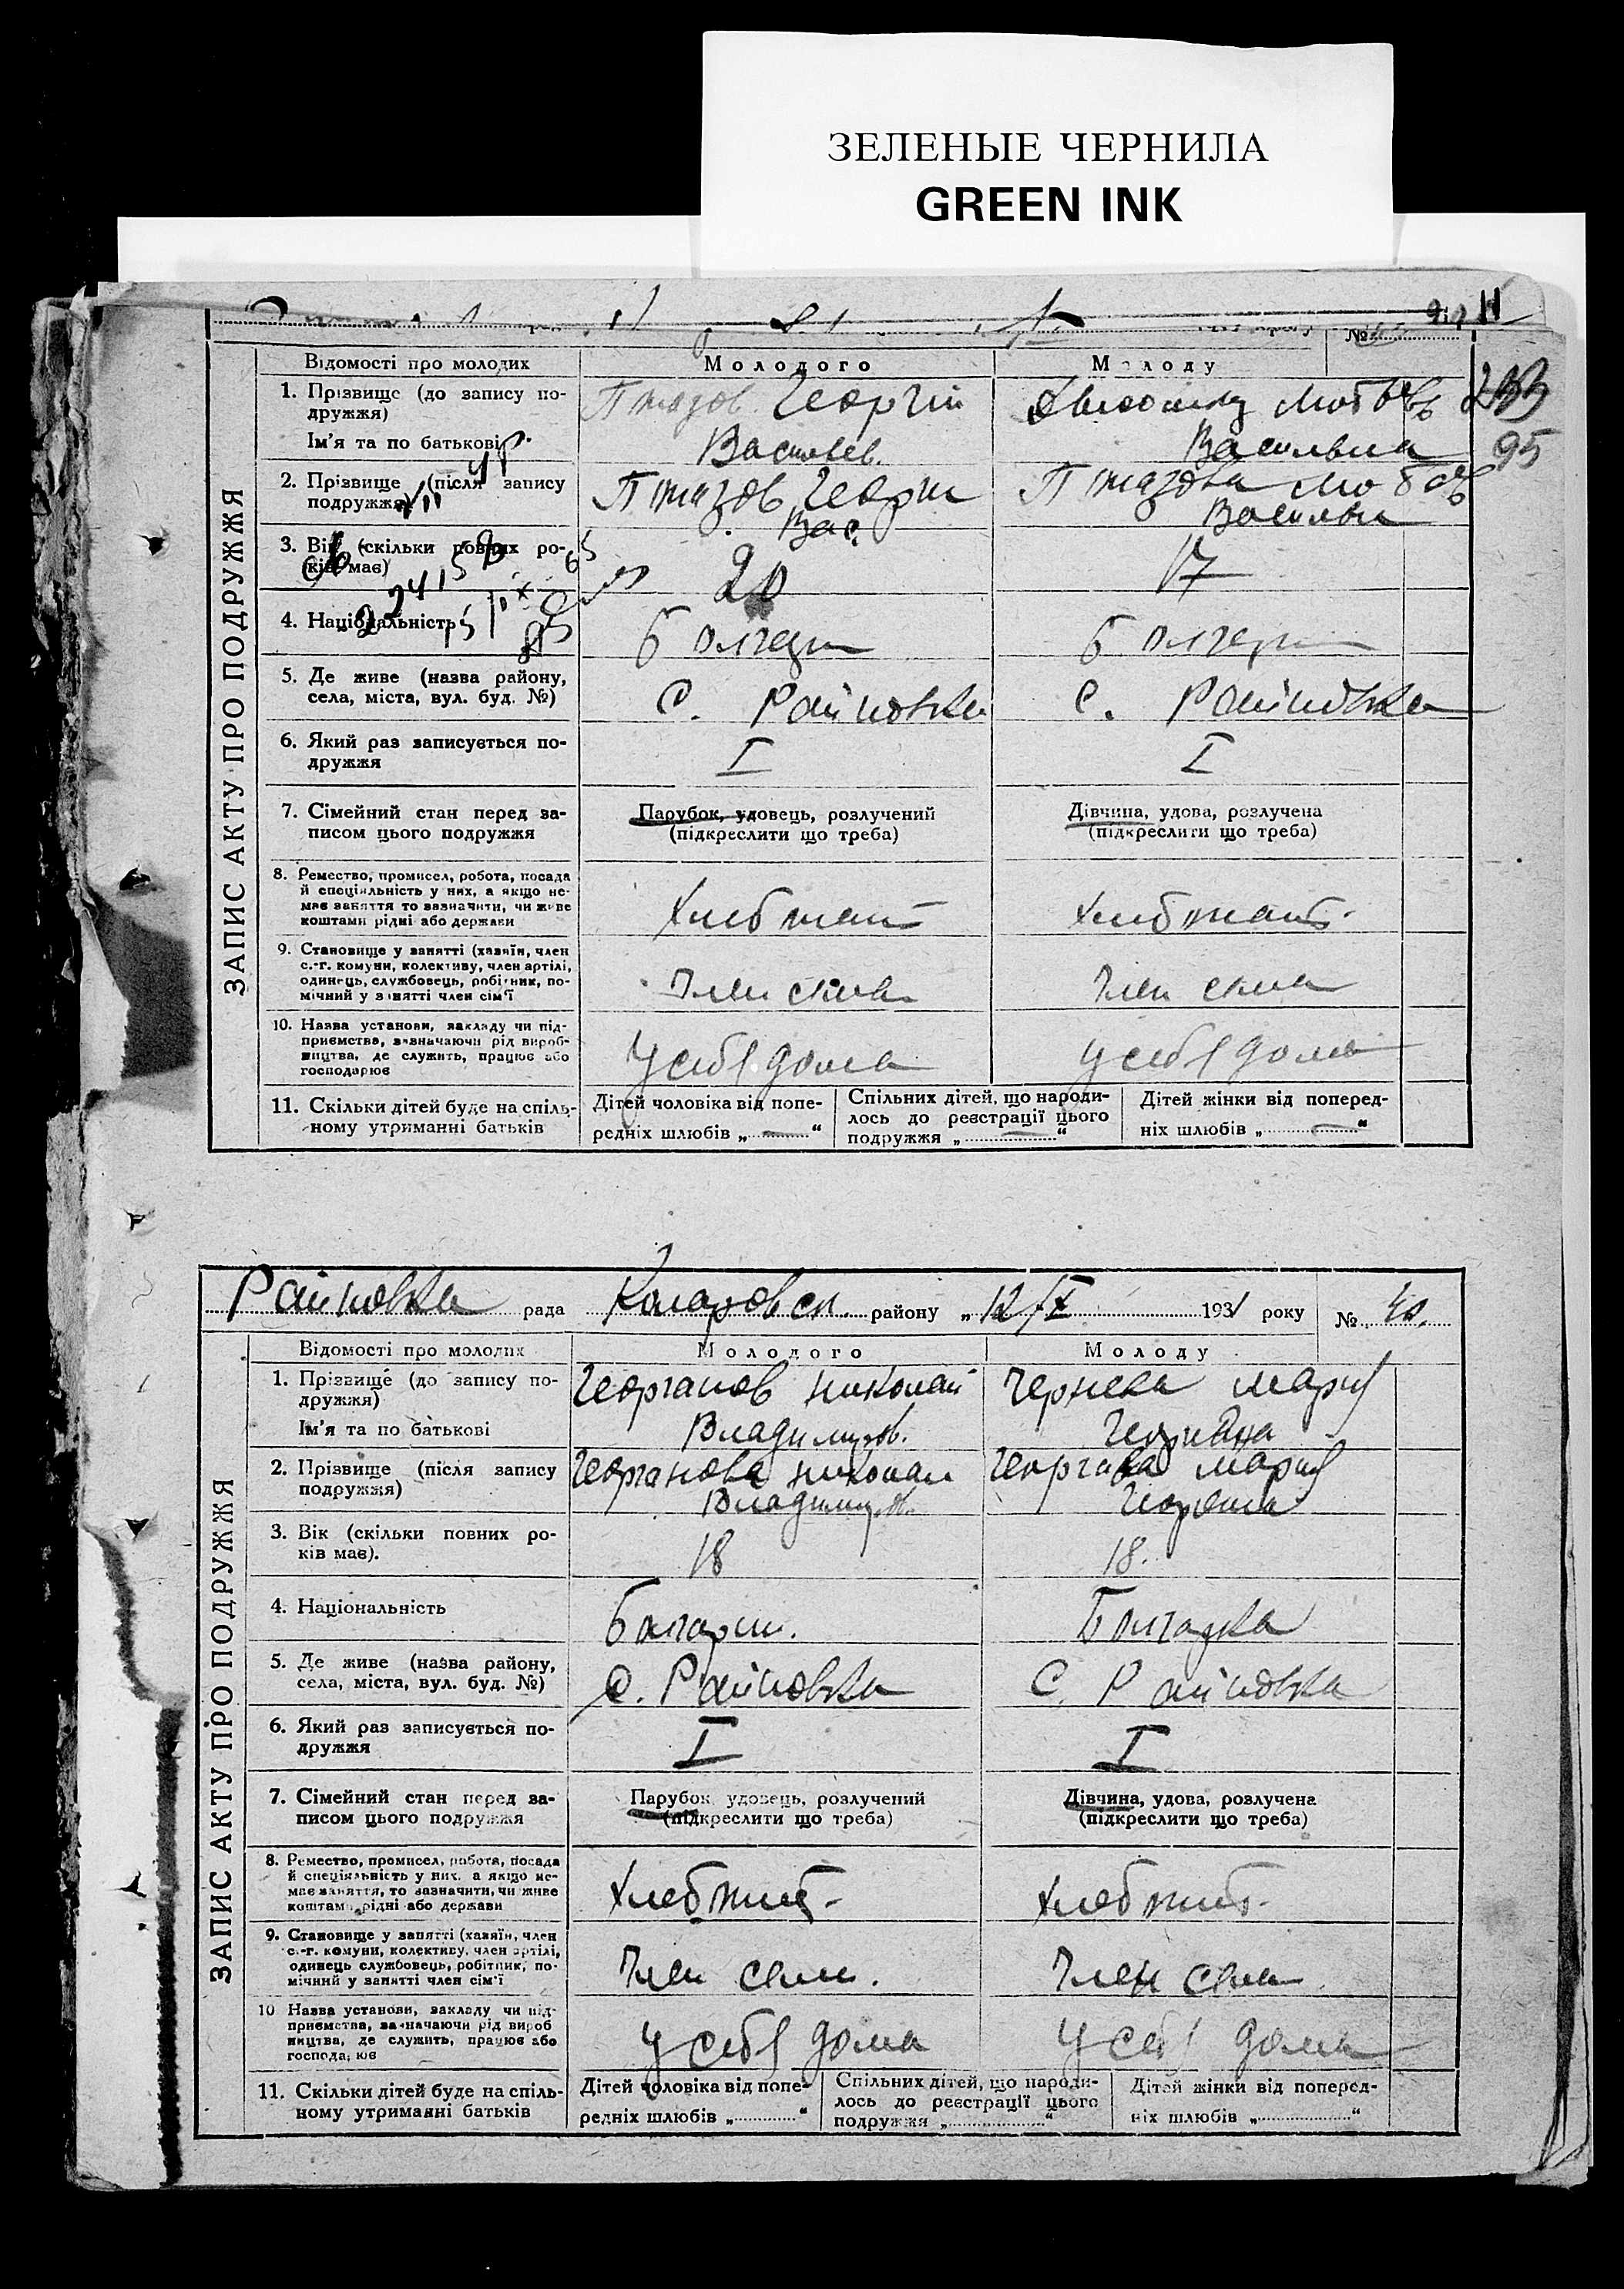 ЗЕЛЕНЫЕ ЧЕРНИЛА
GREEN INK
№
ЗАПИС АКТУ ПРО ПОДРУЖЖЯ
Відомості про молодих
Молодого
Молоду
1. Прізвище (до запису по-
дружжя)
Ім'я та по батькові
Георгій
Васильев.
Васильвна
95
2. Прізвище (після запису
подружжя)
Вас.
3. Вік (скільки повних ро-
ків має)
20
17
4. Національність
5. Де живе (назва району,
села, міста, вул. буд. №)
С. Райновка
С. Райновка
6. Який раз записується по-
дружжя
I
I
7. Сімейний стан перед за-
писом цього подружжя
Парубок, удовець, розлучений
(підкреслити що треба)
Дівчина, удова, розлучена
(підкреслити що треба)
8. Ремество, промисел, робота, посада
й спеціяльність у них, а якщо не-
має заняття то зазначити, чи живе
коштами рідні або держави
9. Становище у занятті (хазяїн, член
с.-г. комуни, колективу, член артілі,
одинець, службовець, робітник, по-
мічний у занятті член сім'ї
Член
Член
10. Назва установи, закладу чи під-
приємства, зазначаючи рід вироб-
ництва, де служить, працює або
господарює
У себя дома
У себя дома
11. Скільки дітей буде на спіль-
ному утриманні батьків
Дітей чоловіка від попе-
редніх шлюбів „ — “
Спільних дітей, що народи-
лось до реєстрації цього
подружжя „ — “
Дітей жінки від поперед-
ніх шлюбів „ — “
Райновка рада Коларовск. району „ 12/X 1931 року № 40.
ЗАПИС АКТУ ПРО ПОДРУЖЖЯ
Відомості про молодих
Молодого
Молоду
1. Прізвище (до запису по-
дружжя)
Ім'я та по батькові
Николай
Владимиров.
Чернева Мария
2. Прізвище (після запису
подружжя)
Мария
3. Вік (скільки повних ро-
ків має).
18
18.
4. Національність
Болгарин.
Болгарка
5. Де живе (назва району,
села, міста, вул. буд. №)
С. Райновка
С. Райновка
6. Який раз записується по-
дружжя
I
I
7. Сімейний стан перед за-
писом цього подружжя
Парубок, удовець, розлучений
(підкреслити що треба)
Дівчина, удова, розлучена
(підкреслити що треба)
8. Ремество, промисел, робота, посада
й спеціяльність у них, а якщо не-
має заняття, то зазначити, чи живе
коштами рідні або держави
9. Становище у занятті (хазяїн, член
с.-г. комуни, колективу, член артілі,
одинець службовець, робітник, по-
мічний у занятті член сім'ї
Член
Член
10 Назва установи, закладу чи під-
приємства, зазначаючи рід вироб
ництва, де служить, працює або
господарює
У себя дома
У себя дома
11. Скільки дітей буде на спіль-
ному утриманні батьків
Дітей чоловіка від попе-
редніх шлюбів „ “
Спільних дітей, що народи-
лось до реєстрації цього
подружжя „ “
Дітей жінки від поперед-
ніх шлюбів „ “